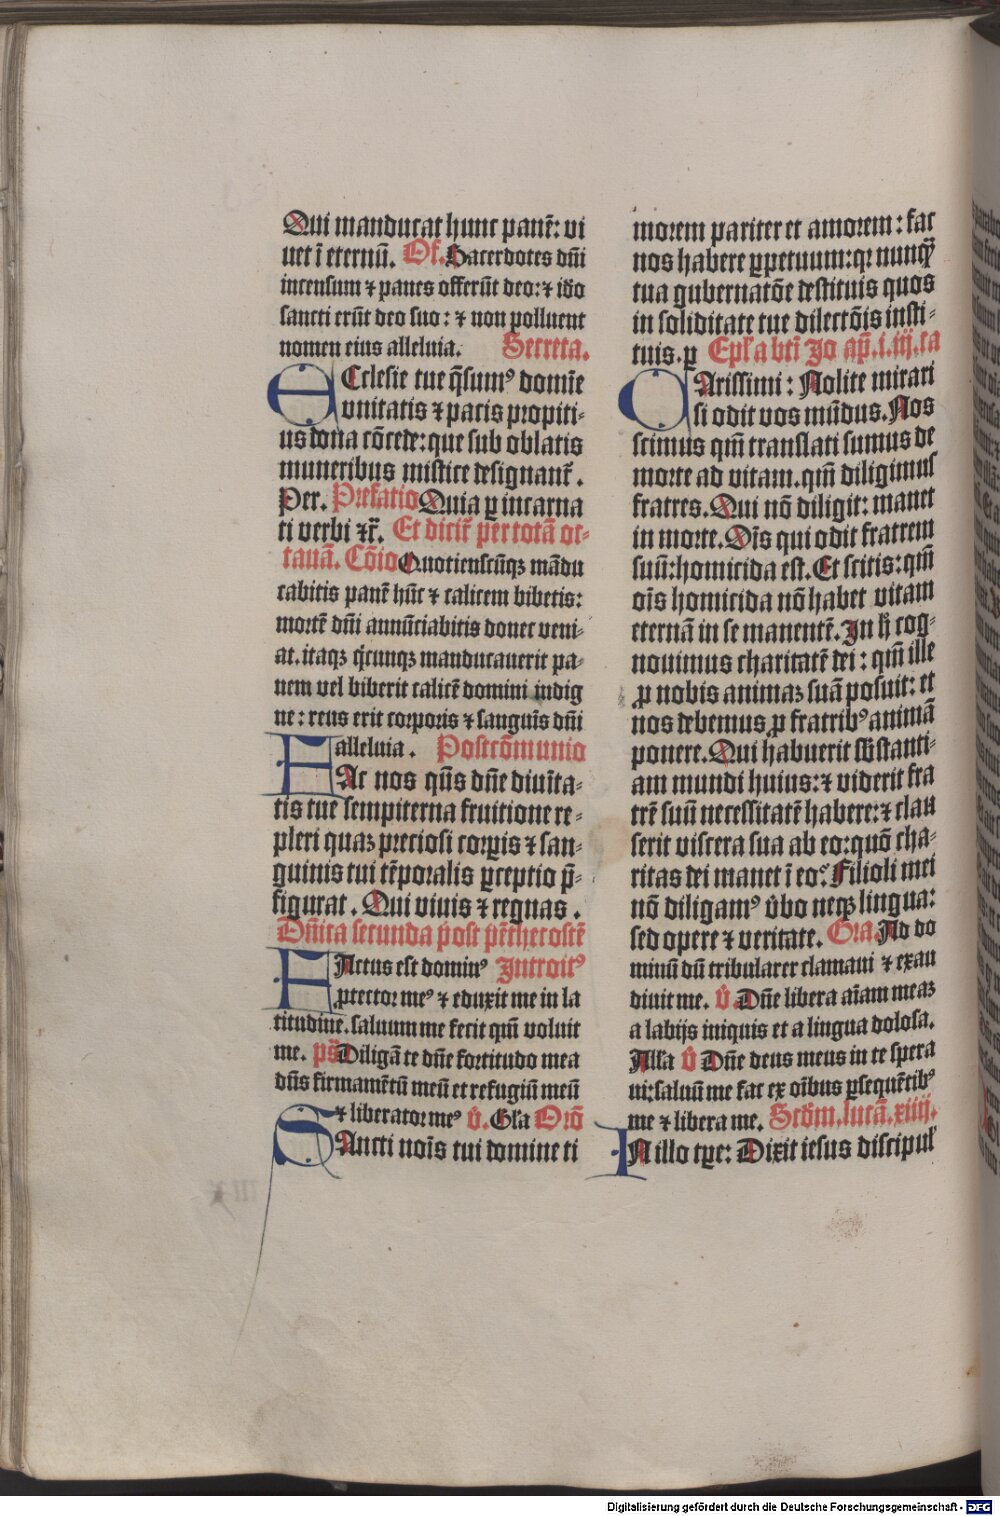 Qui manducat hunc panē: vi
uet ī eternū. Of. Sacerdotes dn̄i
incensum ⁊ panes offerūt deo: ⁊ iō
sancti erūt deo suo: ⁊ non polluent
nomen eius alleluia. Secreta.
ECclesie tue q̄sumꝰ domīe
vnitatis ⁊ pacis propiti-
us dona cōcede: que sub oblatis
muneribus mistice designant̄.
Per. Prefatio Quia ꝑ incarna
ti verbi ⁊c̄. Et dicit̄ per totā oc-
tauā. Cōio Quotienscūqꝫ mādu
cabitis panē hūc ⁊ calicem bibetis:
mortē dn̄i annūciabitis donec veni-
at. itaqꝫ q̇cunqꝫ manducauerit pa-
nem vel biberit calicē domini indig
ne: reus erit corporis ⁊ sanguīs dn̄i
alleluia. Postcōmunio
FAc nos qs̄ dn̄e diuīta-
tis tue sempiterna fruitione re-
pleri quaꝫ preciosi corꝑis ⁊ san-
guinis tui tēporalis ꝑceptio p̄-
figurat. Qui viuis ⁊ regnas.
Dn̄ica secunda post pēthecostē
FActus est dominꝰ Introitꝰ
ꝓtector meꝰ ⁊ eduxit me in la
titudine. saluum me fecit qm̄ voluit
me. ps̄ Diligā te dn̄e fortitudo mea
dn̄s firmamētū meū et refugiū meū
⁊ liberator meꝰ v̄. Gl̄a Orō
SAncti noīs tui domine ti
morem pariter et amorem: fac
nos habere ꝑpetuum: qꝛ nunqᷓ
tua gubernatōe destituis quos
in soliditate tue dilectōis insti-
tuis. ꝑ Epl̄a bt̄i Jo ap̄. i. iij. ca
CArissimi: Nolite mirari
si odit vos mūdus. Nos
scimus qm̄ translati sumus de
morte ad vitam. qm̄ diligimus
fratres. Qui nō diligit: manet
in morte. Oīs qui odit fratrem
suū: homicida est. Et scitis: qm̄
oīs homicida nō habet vitam
eternā in se manentē. In h̄ cog-
nouimus charitatē dei: qm̄ ille
ꝓ nobis animaꝫ suā posuit: et
nos debemus ꝓ fratribꝰ animā
ponere. Qui habuerit sb̄stanti-
am mundi huius: ⁊ viderit fra
trē suū necessitatē habere: ⁊ clau
serit viscera sua ab eo: quō cha-
ritas dei manet ī eo? Filioli mei
nō diligamꝰ v̄bo neqꝫ lingua:
sed opere ⁊ veritate. Gra. Ad do
minū dū tribularer clamaui ⁊ exau
diuit me. v̄. Dn̄e libera aīam meaꝫ
a labijs iniquis et a lingua dolosa.
All̄a v̄ Dn̄e deus meus in te spera
ui: saluū me fac ex oībus ꝑsequētibꝰ
me ⁊ libera me. Scd̄m. lucā. xiiij.
IN illo tꝑe: Dixit iesus discipul̄
Digitalisierung gefördert durch die Deutsche Forschungsgemeinschaft - DFG